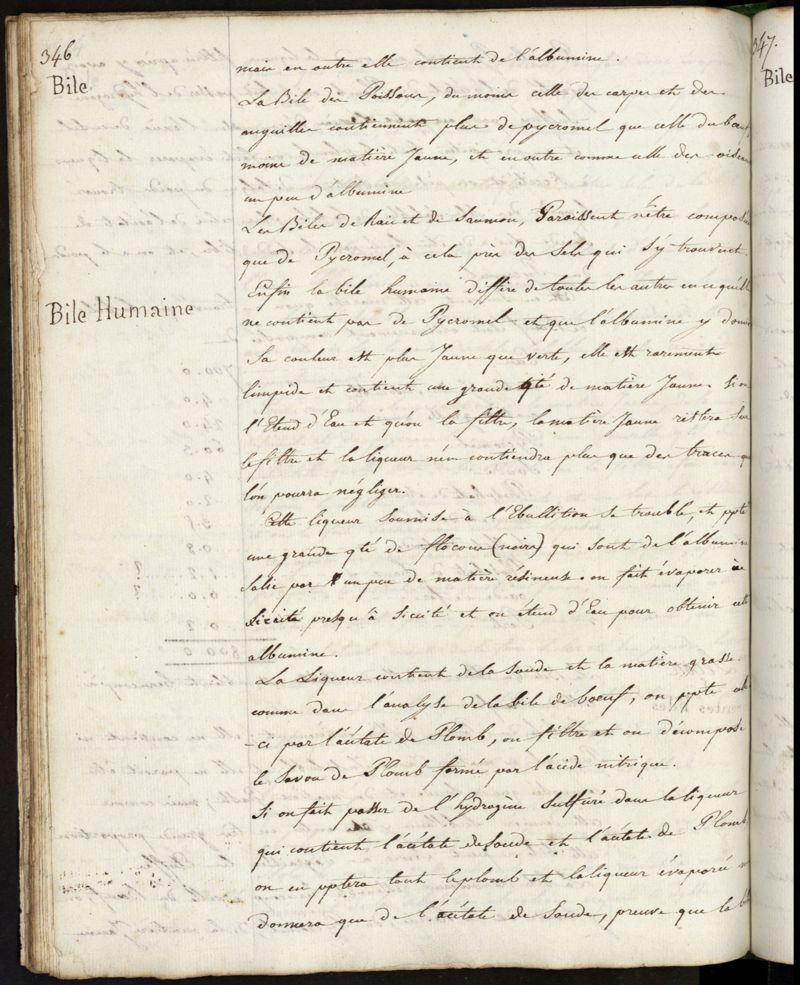 346
Bile
mais en outre elle contient de l'albumine.
La Bile des Poissons, du moins celle des carpes et des
anguilles contiennent plus de pycromel que celle du bœuf,
moins de matière Jaune, et en outre comme celle des oiseaux
un peu d'albumine
Les Biles de Raie et de Saumon, Paraissent n'être composées
que de Pycromel, à cela près des Sels qui s'y trouvent.
Enfin la bile humaine diffère de toutes les autres en ce qu'elle
Bile Humaine
ne contient pas de Pycromel et que l'albumine y domine
Sa couleur est plus Jaune que verte, elle est rarement
limpide et contient une grande qté de matière Jaune. Si on
l'Etend d'Eau et qu'on la filtre, la matière Jaune restera sur
le filtre et la liqueur n'en contiendra plus que des traces que
l'on pourra négliger.
Cette liqueur soumise à l'Ebullition se trouble, et ppte
une grande qté de flocons (noirs) qui sont de l'albumine
salie par un peu de matière résineuse. on fait évaporer
Sicaité presqu'à siccité et on étend d'Eau pour obtenir cette
albumine.
La Liqueur contient de la Soude et la matière grasse
comme dans l'analyse de la bile de bœuf, on ppte celle
-ci par l'acétate de Plomb, on filtre et on décompose
le Savon de Plomb formé par l'acide nitrique.
Si on fait passer de l'hydrogène sulfuré dans la liqueur
qui contient l'acétate de Soude et l'acétate de Plomb
on en pptera tout le plomb et la liqueur évaporée ne
donnera que de l'acétate de Soude, preuve que la bile
347.
Bile